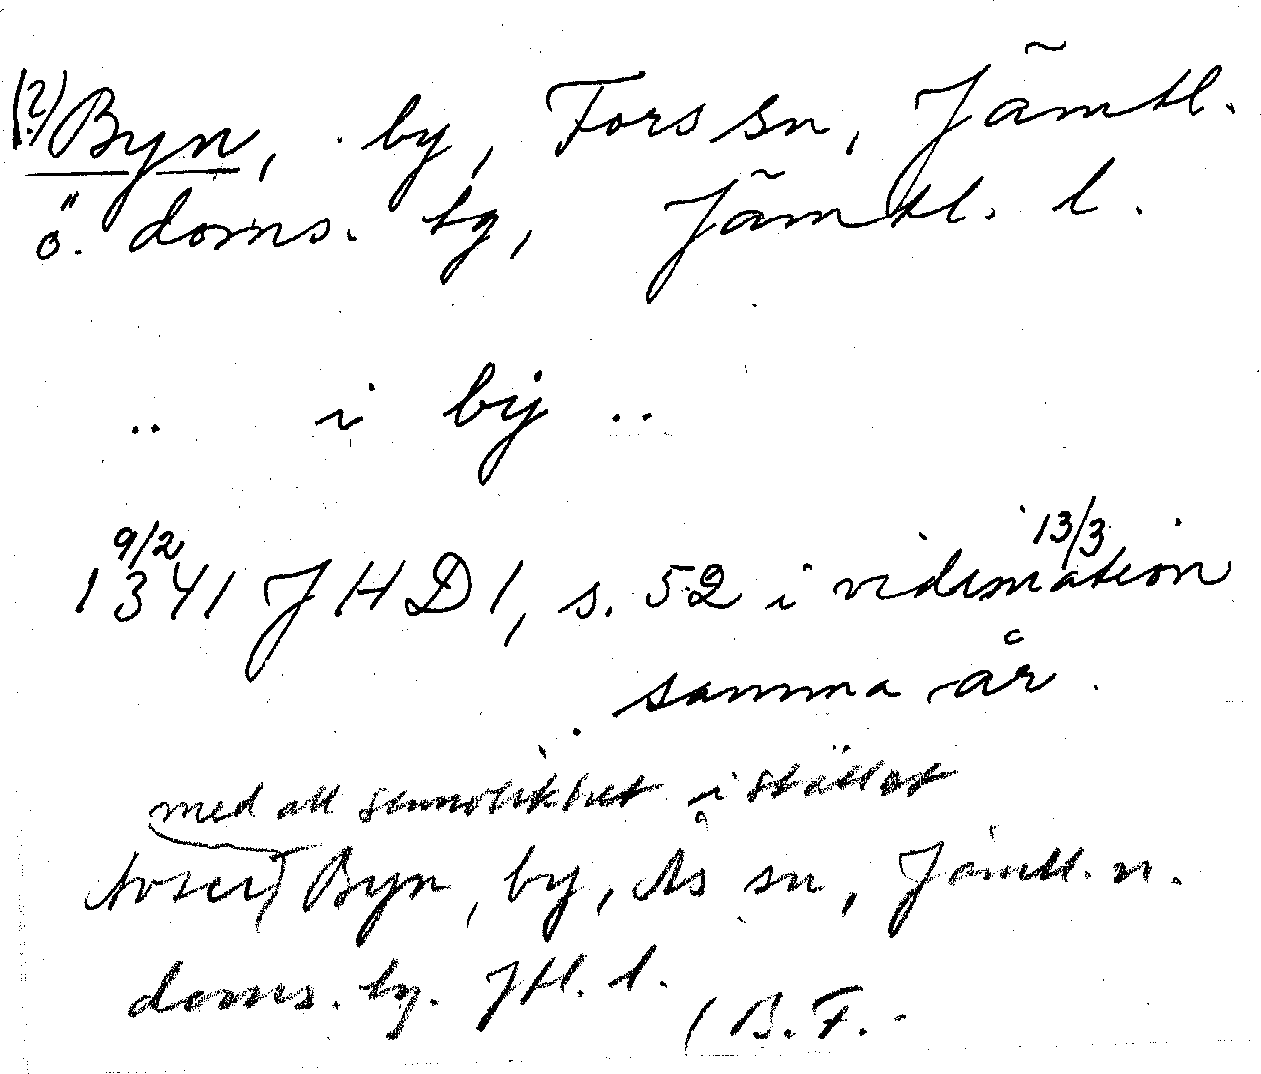 (?) Byn, by, Fors sn, Jämtl.
ö. doms. bg, Jämtl. l.
.. i bÿ ..
9/2 13/3
1341 JHD 1, s. 52 i vidimation
samma år.
med all sannolikhet i stället
avser Byn, by, Ås sn, Jämtl. n.
doms. bg. Jtl. l.
(B.F.